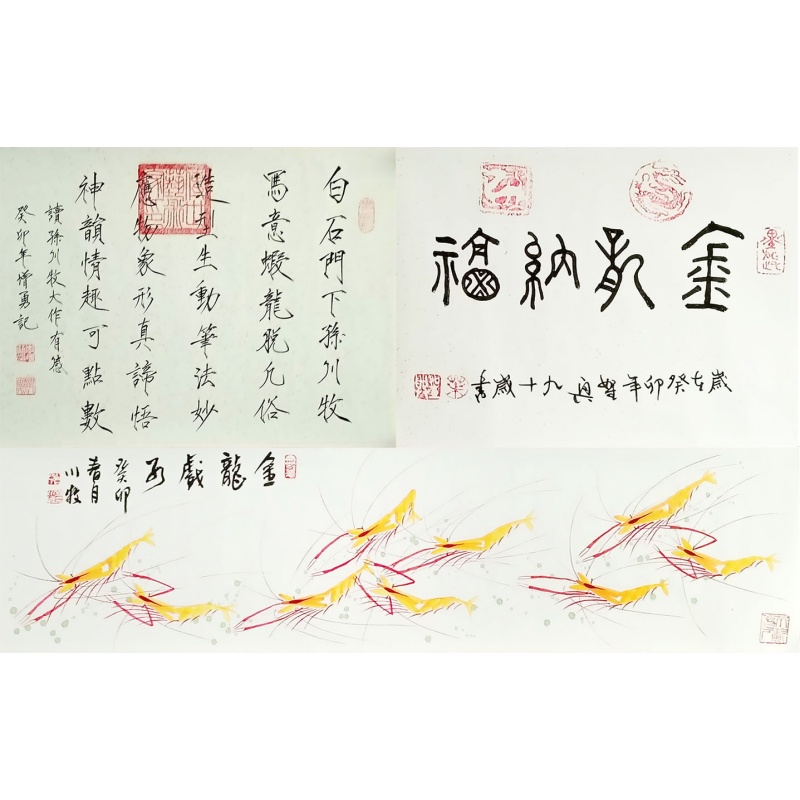 白石門下孫川牧
寫意蝦龍脫凡俗
造型生動筆法妙
應物象形真諦悟
神韻情趣可點數
讀孫川牧大作有感
癸卯年勇記
金龍納福
歲在癸卯年九十歲書
金龍戲水
癸卯
春月
川牧